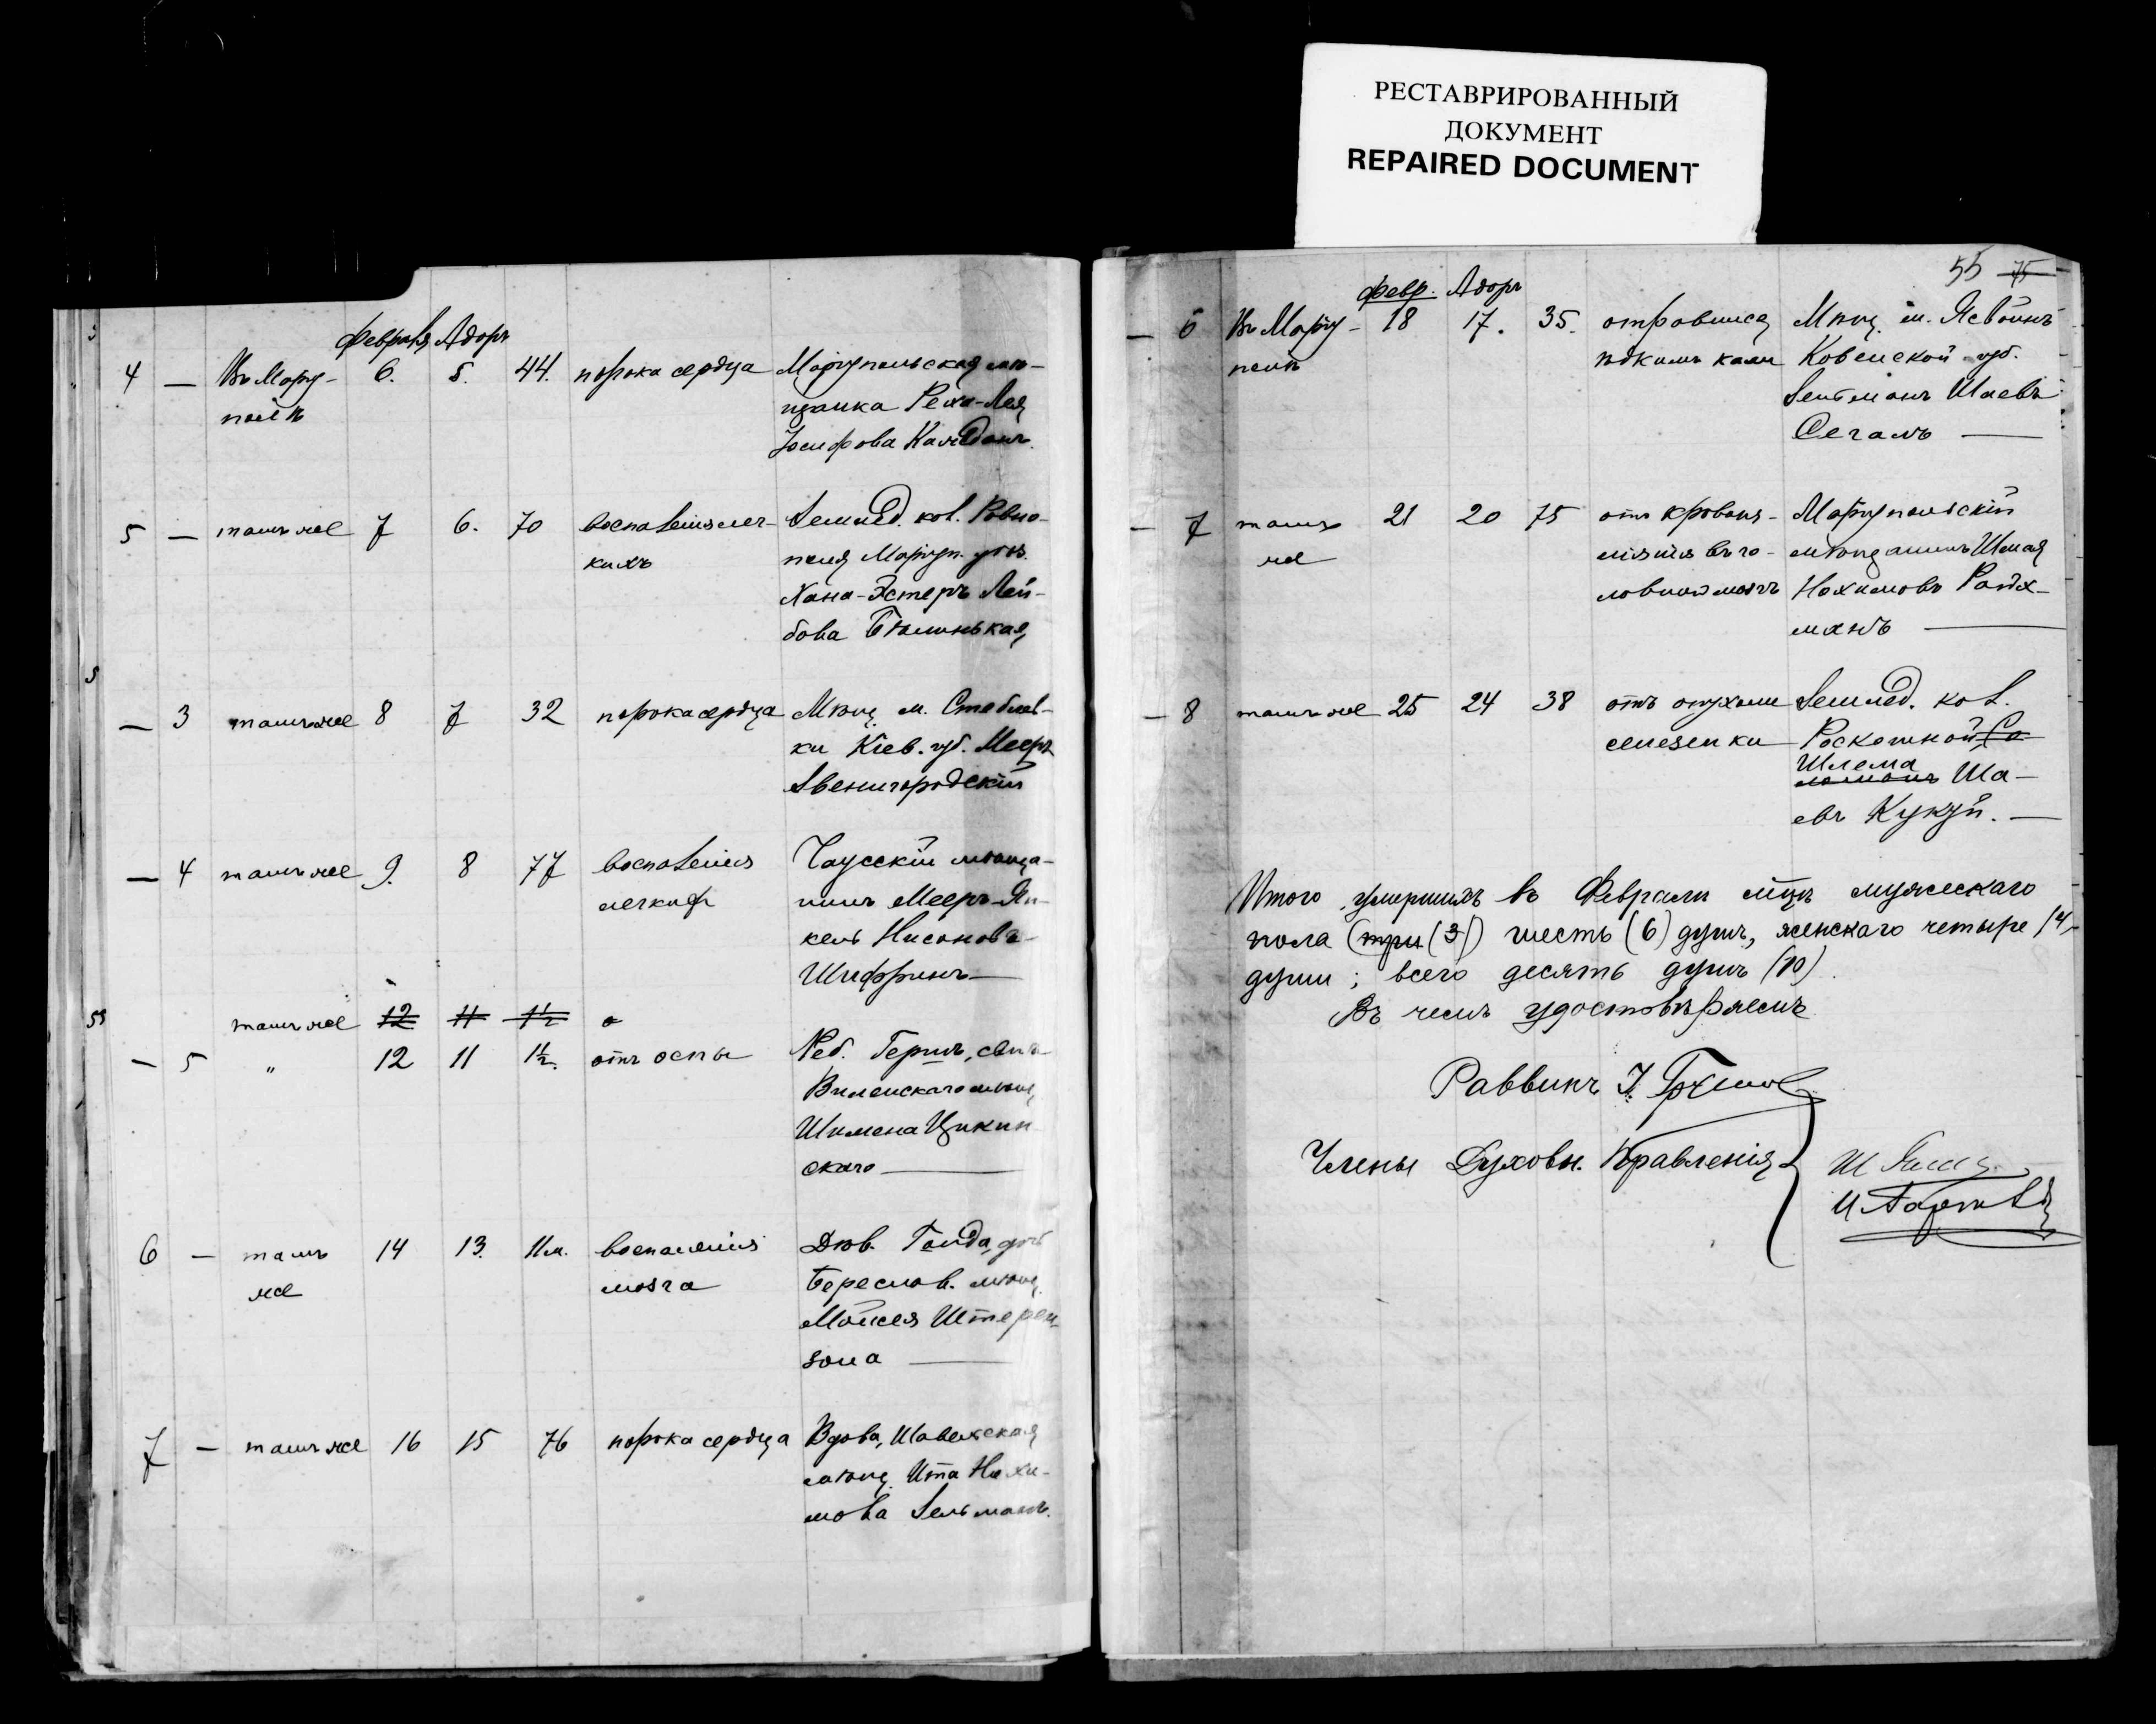 РЕСТАВРИРОВАННЫЙ
ДОКУМЕНТ
REPAIRED DOCUMENT
Февраля Адоръ
4 — Въ Мариу- 6. 5. 44. порока сердца Маріупольская мѣ-
полѣ щанка Рейза-Лея
Іосифова Кальманъ.
5 — тамъ же 7 6. 70 воспаленія лег- Земляд. кол. Ровно-
кихъ поля Маріуп. уѣз.
Хана-Эстеръ Лей-
бова Бѣлинькая
— 3 тамъ же 8 7 32 порока сердца Мѣщ. м. Стеблев-
ки Кіев. губ. Мееръ
Звенигородскій
— 4 тамъ же 9. 8 77 воспаленія Чаусскій мѣща-
легкихъ нинъ Мееръ-Ян-
кель Нисоновъ
Шифринъ —
тамъ же 12 11 1½ о
— 5 " 12 11 1½ отъ оспы Реб. Гершъ, сынъ
Виленскаго мѣщ.
Шимена Цикин
скаго —
6 — тамъ 14 13. 11 м. воспаленія Дѣв. Голда, дочь
же мозга Береслав. мѣщ.
Моисея Штерен-
зона —
7 — тамъ же 16 15 76 порока сердца Вдова, Шавельская
мѣщ. Ита Нохи-
мова Зельманъ.
55 75
Февр. Адоръ
— 6 Въ Мариу- 18 17. 35. отравился Мѣщ. м. Ясвоинъ
полѣ ѣдкимъ кали Ковенской губ.
Зельманъ Шаевъ
Сегалъ —
— 7 тамъ 21 20 75 отъ кровоиз- Маріупольскій
же ліянія въ го- мѣщанинъ Шмая
ловной мозгъ Нохимовъ Ройх-
манъ —
— 8 тамъ же 25 24 38 отъ опухоли Земляд. кол.
селезенки Роскошной Со
Шлема
ломонъ Ша-
евъ Кукуй. —
Итого умершихъ въ Февралѣ мцѣ мужескаго
пола (три (3)) шесть (6) душъ, женскаго четыре (4)
души; всего десять душъ (10).
Въ чемъ удостовѣряемъ
Раввинъ
Члены Духовн. Правленія